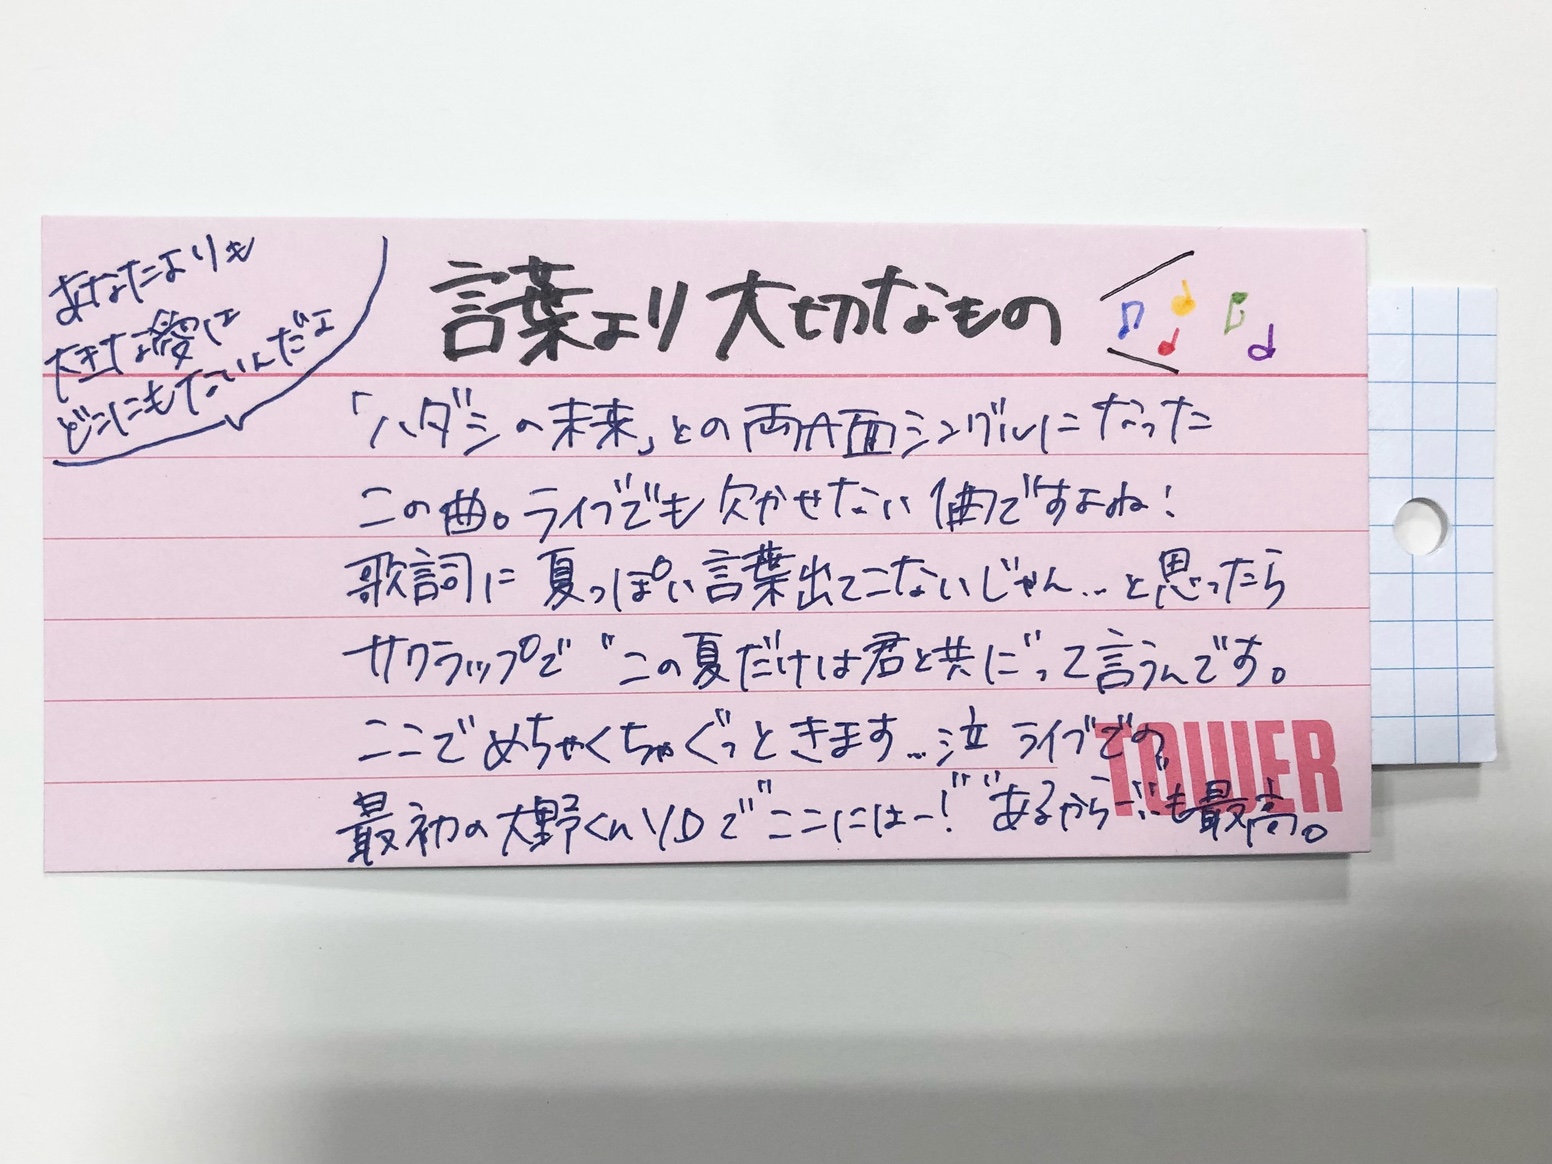 あなたよりも
大きな愛は
どこにもないんだよ
言葉より大切なもの
「ハダシの未来」との両A面シングルになった
この曲。ライブでも欠かせない1曲ですよね!
歌詞に夏っぽい言葉出てこないじゃん…と思ったら
サクラップで"この夏だけは君と共に"って言うんです。
ここでめちゃくちゃぐっときます…泣 ライブでの
最初の大野くんソロで"ここにはー!""あるからー"も最高。
TOWER